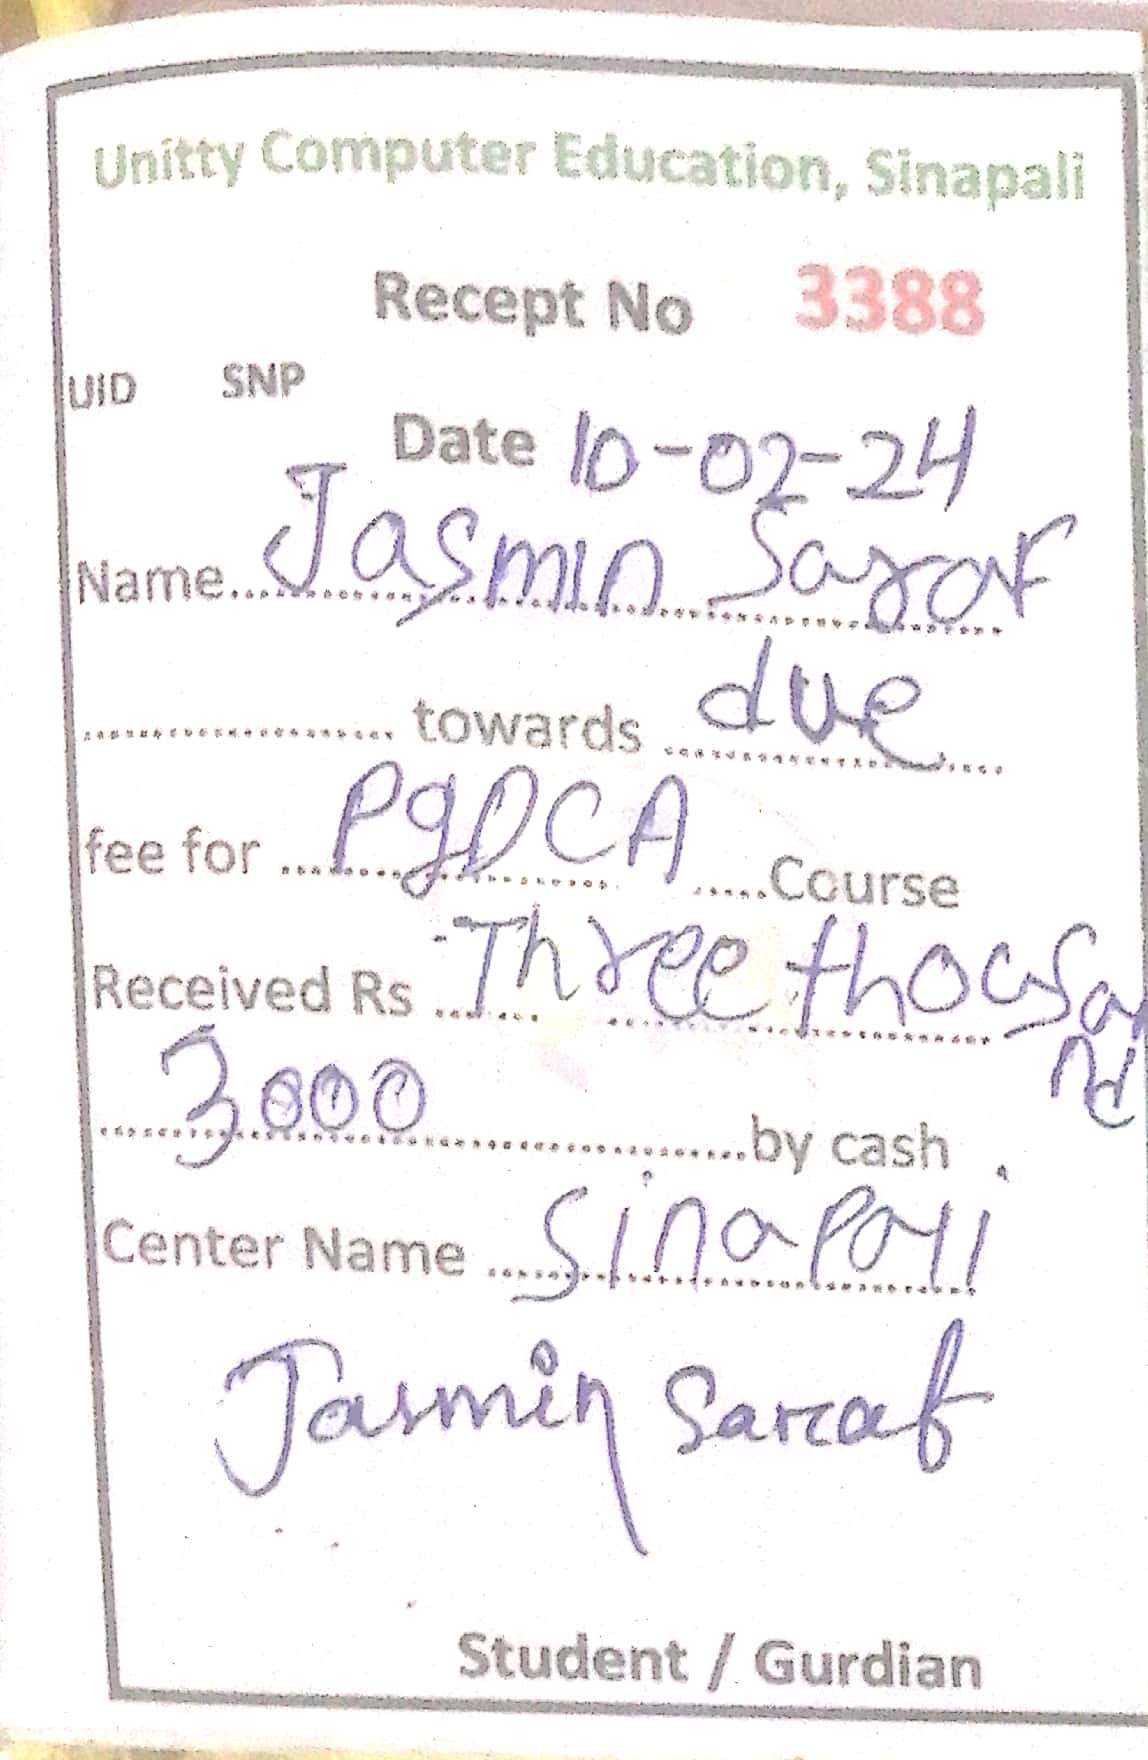 Unitty Computer Education, Sinapali
Recept No 3388
UID SNP
Date 10-02-24
Name Jasmin Saraf
towards due
fee for PgDCA Course
Received Rs Three thousand
3000 by cash
Center Name Sinapali
Jasmin Saraf
Student / Gurdian